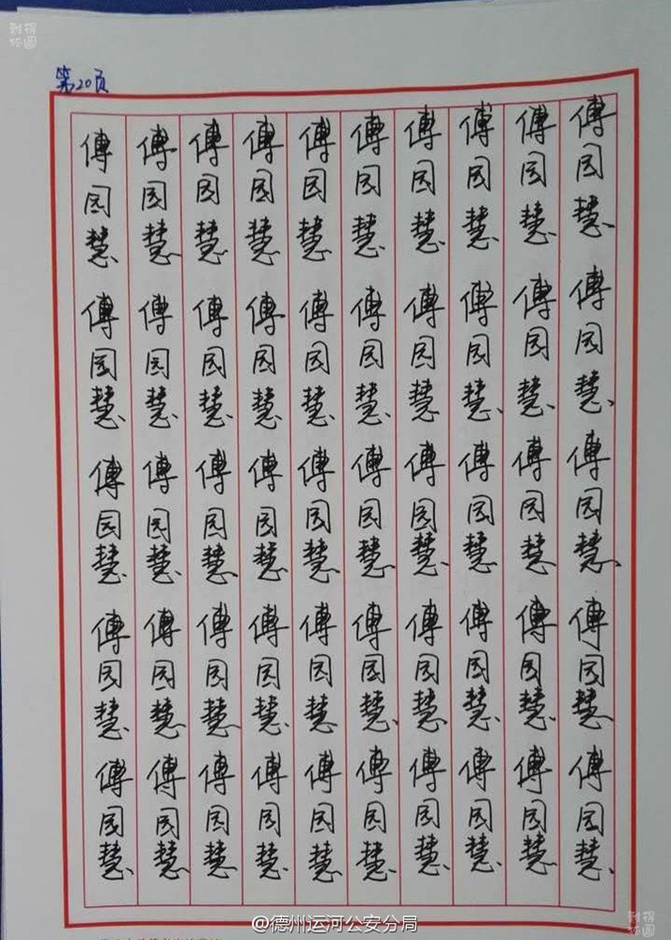 第20页
傅园慧傅园慧傅园慧傅园慧傅园慧
傅园慧傅园慧傅园慧傅园慧傅园慧
傅园慧傅园慧傅园慧傅园慧傅园慧
傅园慧傅园慧傅园慧傅园慧傅园慧
傅园慧傅园慧傅园慧傅园慧傅园慧
傅园慧傅园慧傅园慧傅园慧傅园慧
傅园慧傅园慧傅园慧傅园慧傅园慧
傅园慧傅园慧傅园慧傅园慧傅园慧
傅园慧傅园慧傅园慧傅园慧傅园慧
傅园慧傅园慧傅园慧傅园慧傅园慧
@德州运河公安分局